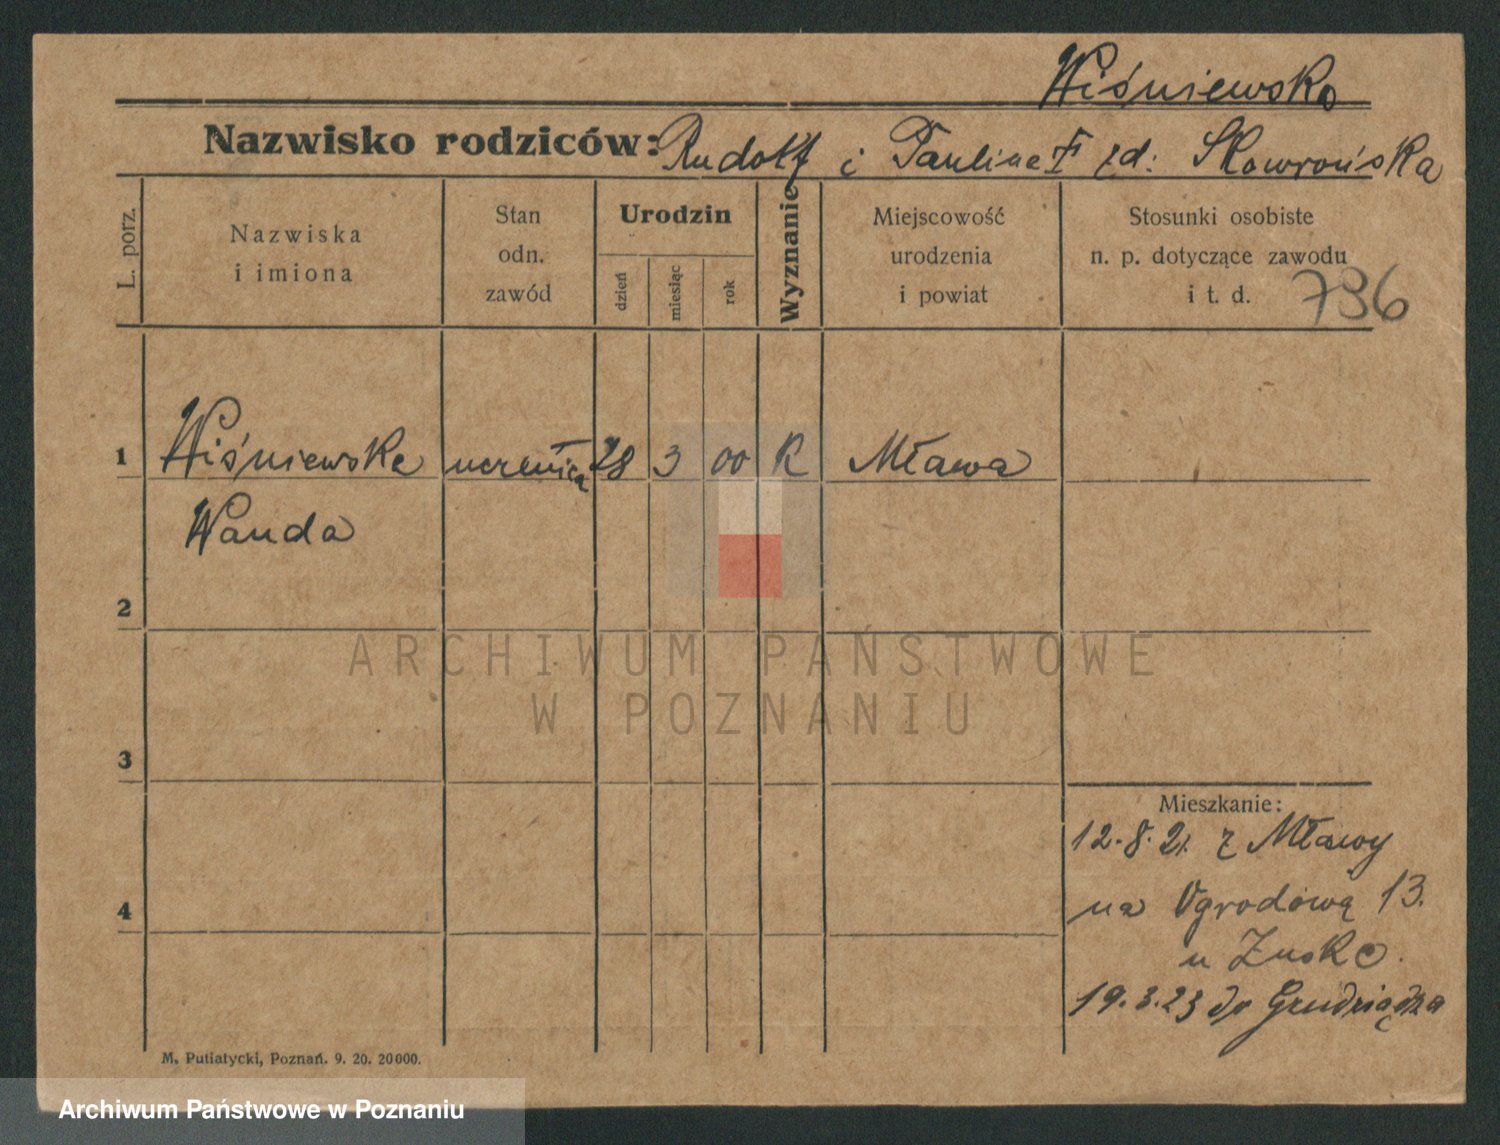 Wiśniewska
Nazwisko rodziców: Rudolf i Pauline zd: Skowrońska
L. porz.
Nazwiska
i imiona
Stan
odn.
zawód
Urodzin
dzień
miesiąc
rok
Wyznanie
Miejscowość
urodzenia
i powiat
Stosunki osobiste
n. p. dotyczące zawodu
i t. d.
796
1 Wiśniewska uczenica 28 3 00 R Mława
Wanda
2
ARCHIWUM PAŃSTWOWE
W POZNANIU
3
Mieszkanie:
12.8.21. z Mławy
4
na Ogrodową 13.
u
19.3.23 do Grudziądza
M. Putiatycki, Poznań. 9. 20. 20000.
Archiwum Państwowe w Poznaniu